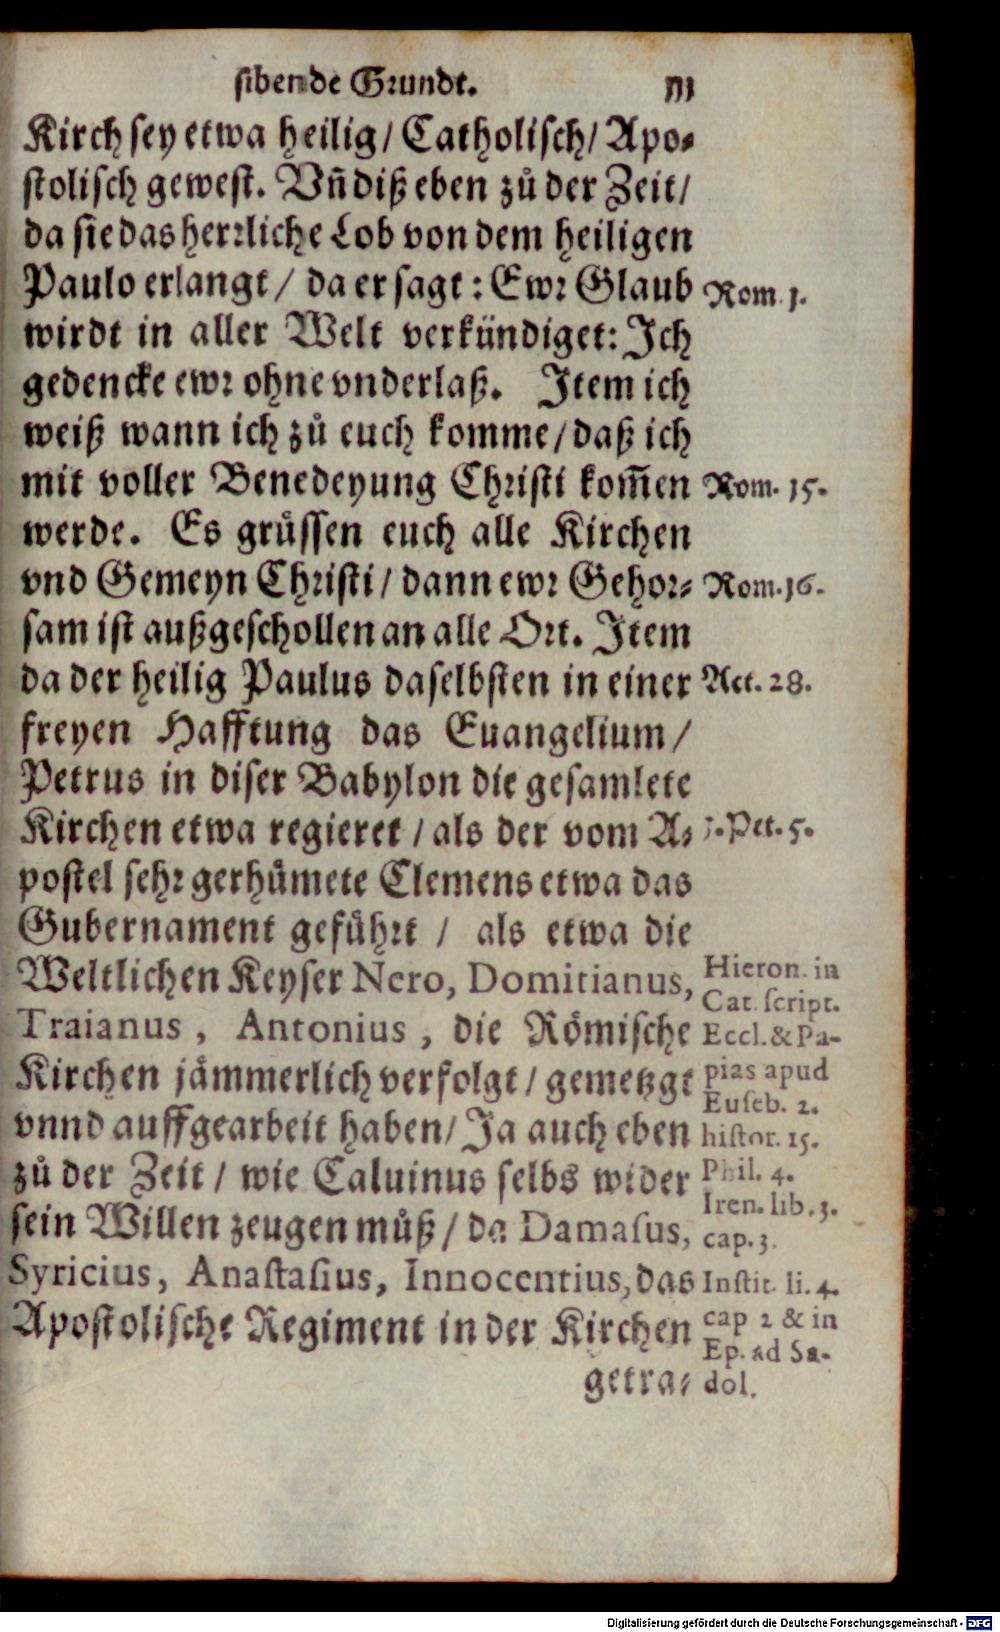 sibende Grundt. 111
Kirch sey etwa heilig/ Catholisch/ Apo-
stolisch gewest. Vñ diß eben zů der Zeit/
da sie das herrliche Lob von dem heiligen
Paulo erlangt / da er sagt : Ewr Glaub
wirdt in aller Welt verkündiget: Jch
gedencke ewr ohne vnderlaß. Jtem ich
weiß wann ich zů euch komme/ daß ich
mit voller Benedeyung Christi kom̃en
werde. Es grůssen euch alle Kirchen
vnd Gemeyn Christi/ dann ewr Gehor-
sam ist außgeschollen an alle Ort. Jtem
da der heilig Paulus daselbsten in einer
freyen Hafftung das Euangelium/
Petrus in diser Babylon die gesamlete
Kirchen etwa regieret / als der vom A-
postel sehr gerhůmete Clemens etwa das
Gubernament gefůhrt / als etwa die
Weltlichen Keyser Nero, Domitianus,
Traianus, Antonius, die Römische
Kirchen jämmerlich verfolgt/ gemetzgt
vnnd auffgearbeit haben/ Ja auch eben
zů der Zeit / wie Caluinus selbs wider
sein Willen zeugen můß / da Damasus,
Syricius, Anastasius, Innocentius, das
Apostolische Regiment in der Kirchen
getra-
Rom. 1.
Rom. 15.
Rom. 16.
Act. 28.
1. Pet. 5.
Hieron. in
Cat. script.
Eccl. & Pa-
pias apud
Euseb. 2.
histor. 15.
Phil. 4.
Iren. lib. 3.
cap. 3.
Instit. li. 4.
cap 2 & in
Ep. ad Sa-
dol.
Digitalisierung gefördert durch die Deutsche Forschungsgemeinschaft - DFG